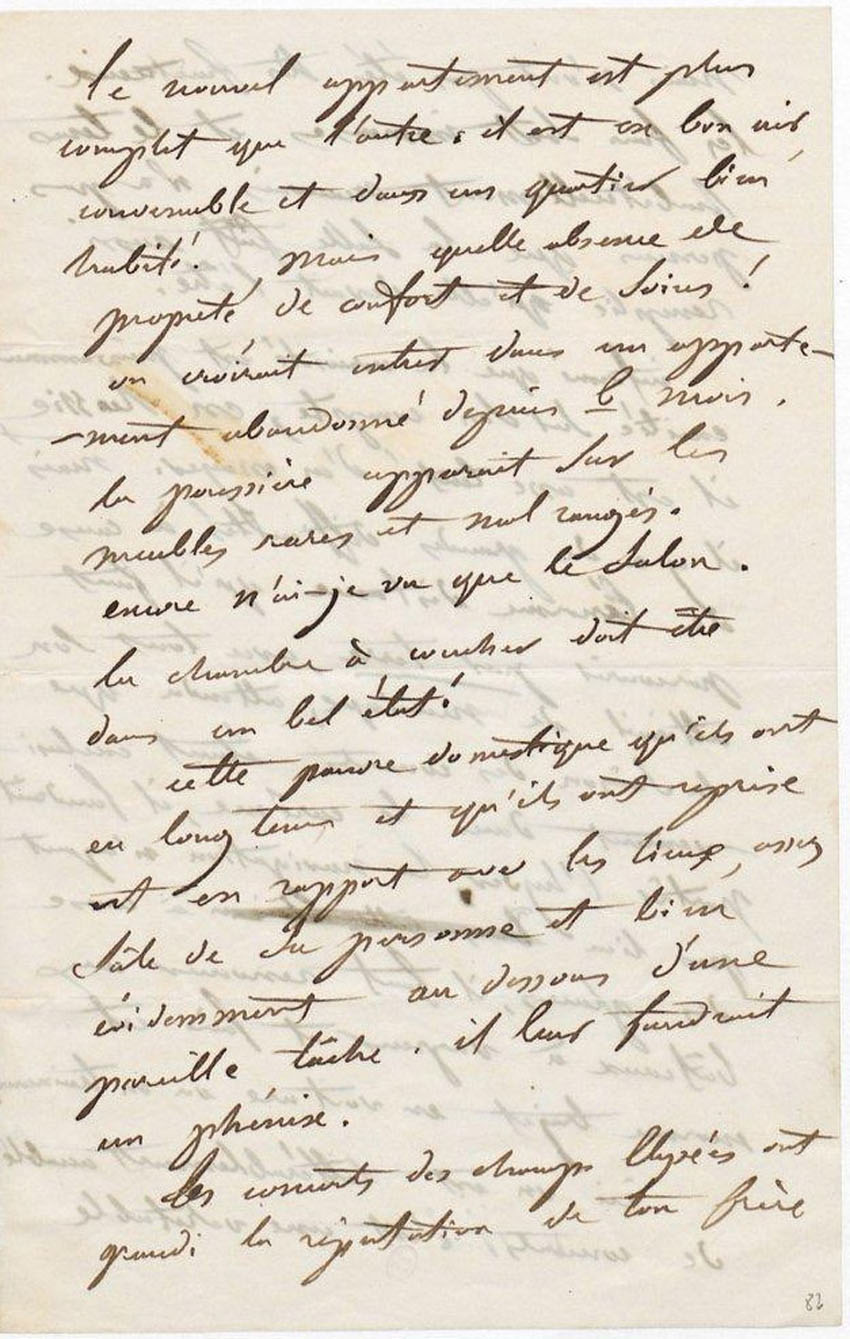 le nouvel appartement est plus
complet que l'autre, il est en bon air,
convenable et dans un quartier bien
habité! mais quelle absence de
propreté de confort et de soins!
on croirait entrer dans un apparte-
-ment abandonné depuis 6 mois.
la poussière apparait sur les
meubles rares et mal rangés.
encore n'ai-je vu que le salon.
la chambre à coucher doit être
dans un bel état!
cette pauvre domestique qu'ils ont
eu longtems et qu'ils ont reprise
est en rapport avec les lieux, assez
sale de sa personne et bien
évidemment au dessous d'une
pareille tâche. il leur faudrait
un phénix.
les concerts des champs Elysées ont
grandi la réputation de ton frère
82